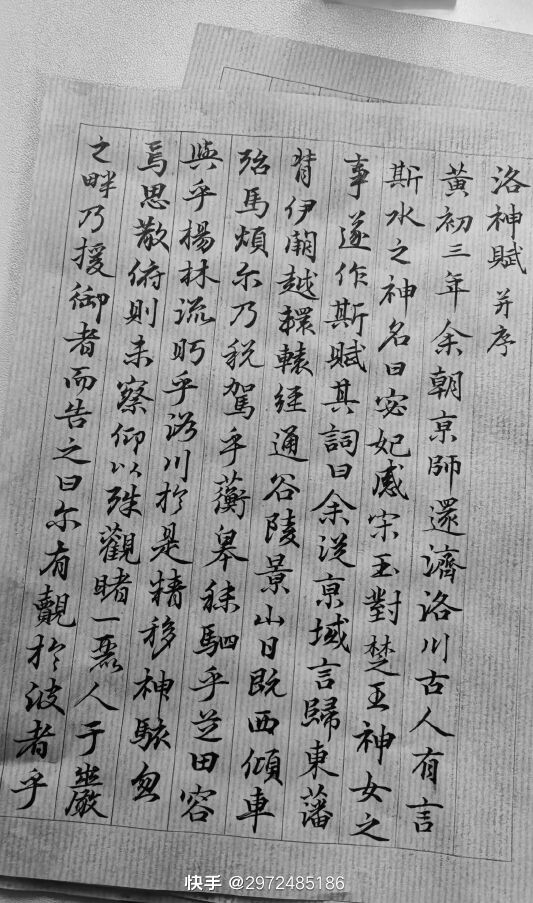 洛神賦 并序
黃初三年余朝京師還濟洛川古人有言
斯水之神名曰宓妃感宋玉對楚王神女之
事遂作斯賦其詞曰余從京域言歸東藩
背伊闕越轘轅經通谷陵景山日既西傾車
殆馬煩尓乃稅駕乎蘅皋秣駟乎芝田容
與乎楊林流眄乎洛川於是精移神駭忽
焉思散俯則未察仰以殊觀睹一麗人于巖
之畔乃援御者而告之曰尓有覿於彼者乎
快手 @2972485186